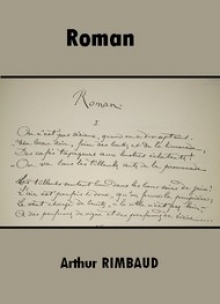 Roman
Roman.
I
On n'est pas sérieux, quand on a dix-sept ans.
— Un beau soir, foin des bocks et de la limonade,
Des cafés tapageurs aux lustres éclatants !
— On va sous les tilleuls verts de la promenade
Les tilleuls sentent bon dans les bons soirs de juin !
L'air est parfois si doux, qu'on ferme la paupière ;
Le vent chargé de bruits, — la ville n'est pas loin, —
A des parfums de vigne et des parfums de bière....
Arthur RIMBAUD